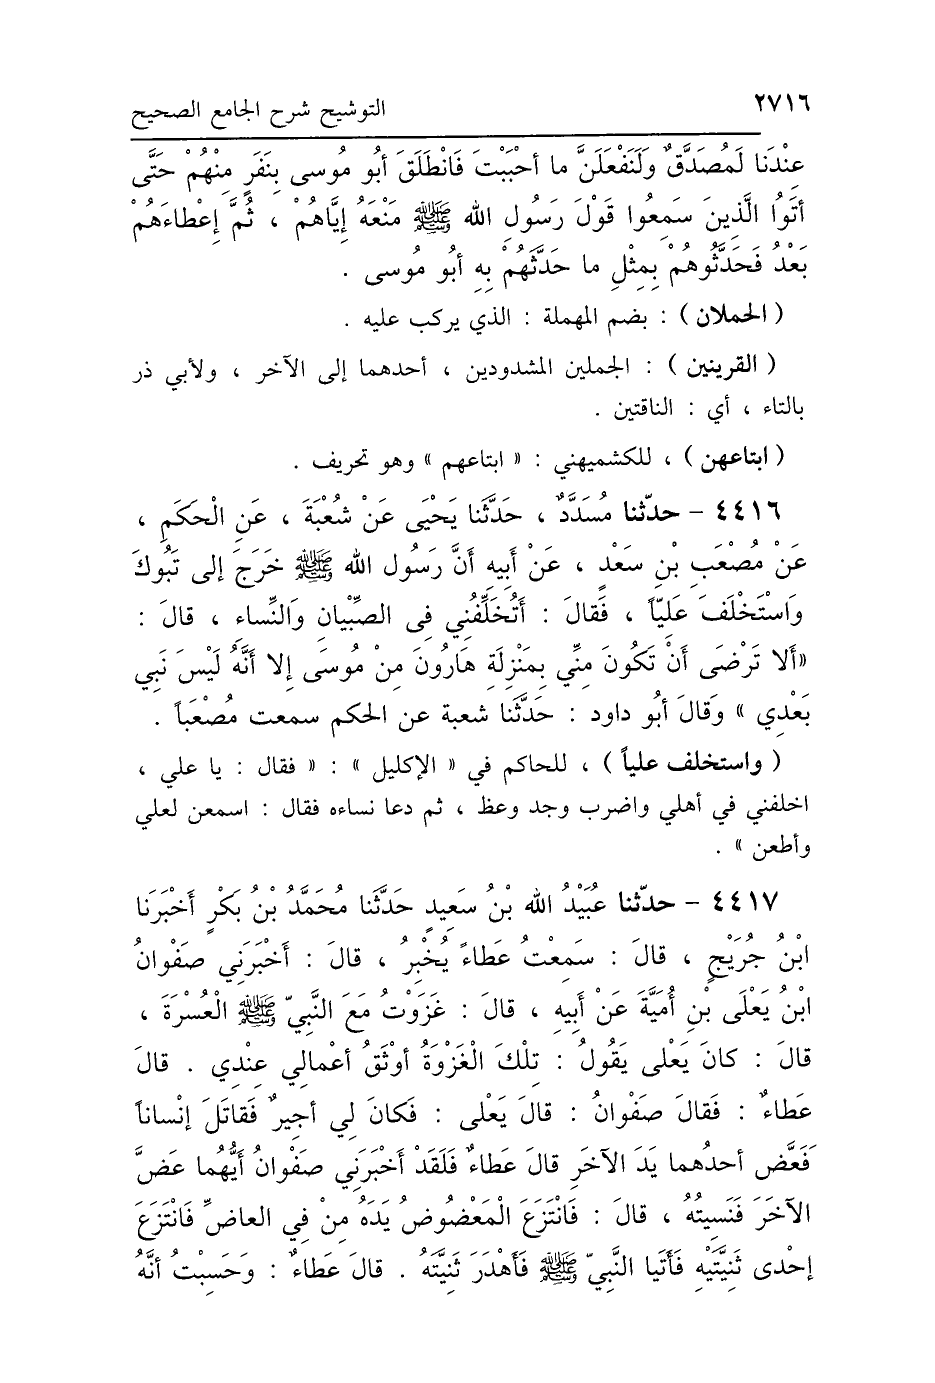 ٢٧١٦ التوشيح شرح الجامع الصحيح
عِنْدَنا لَمُصَدَّقٌ وَلَنَفْعَلَنَّ ما أحْبَبْتَ فَانْطَلَقَ أبُو مُوسى بِنَفَرٍ مِنْهُمْ حَتَّى
أتَوُا الَّذِينَ سَمِعُوا قَوْلَ رَسُولِ الله ﷺ مَنْعَهُ إيَّاهُمْ ، ثُمَّ إعْطاءَهُمْ
بَعْدُ فَحَدَّثُوهُمْ بِمِثْلِ ما حَدَّثَهُمْ بِهِ أبُو مُوسى .
( الحملان ) : بضم المهملة : الذي يركب عليه .
( القرينين ) : الجملين المشدودين ، أحدهما إلى الآخر ، ولأبي ذر
بالتاء ، أي : الناقتين .
( ابتاعهن ) ، للكشميهني : « ابتاعهم » وهو تحريف .
٤٤١٦ - حدّثنا مُسَدَّدٌ ، حَدَّثَنا يَحْيَى عَنْ شُعْبَةَ ، عَنِ الْحَكَمِ ،
عَنْ مُصْعَبِ بْنِ سَعْدٍ ، عَنْ أَبِيهِ أَنَّ رَسُول الله ﷺ خَرَجَ إلى تَبُوكَ
وَاسْتَخْلَفَ عَلِيّاً ، فَقالَ : أَتُخَلِّفُنِي فِى الصِّبْيان وَالنِّساء ، قالَ :
«أَلا تَرْضَى أَنْ تَكُونَ مِنِّي بِمَنْزِلَةِ هَارُونَ مِنْ مُوسَى إلا أَنَّهُ لَيْسَ نَبِي
بَعْدِي » وَقالَ أبُو داود : حَدَّثَنا شعبة عن الحكم سمعت مُصْعَباً .
( واستخلف علياً ) ، للحاكم في « الإكليل » : « فقال : يا علي ،
اخلفني في أهلي واضرب وجد وعظ ، ثم دعا نساءه فقال : اسمعن لعلي
وأطعن » .
٤٤١٧ - حدّثنا عُبَيْدُ الله بْنُ سَعِيدٍ حَدَّثَنا مُحَمَّدُ بْنُ بَكْرٍ أَخْبَرَنا
ابْنُ جُرَيْجٍ ، قالَ : سَمِعْتُ عَطاءً يُخْبِرُ ، قالَ : أَخْبَرَنِي صَفْوانُ
ابْنُ يَعْلَى بْنِ أُمَيَّةَ عَنْ أبِيهِ ، قالَ : غَزَوْتُ مَعَ النَّبِيّ ﷺ الْعُسْرَةَ ،
قالَ : كانَ يَعْلى يَقُولُ : تِلْكَ الْغَزْوَةُ أوْثَقُ أعْمالِي عِنْدِي . قالَ
عَطاءٌ : فَقالَ صَفْوانُ : قالَ يَعْلى : فَكانَ لِي أجِيرٌ فَقاتَلَ إنْساناً
فَعَضَّ أحدُهما يَدَ الآخَرِ قالَ عَطاءٌ فَلَقَدْ أَخْبَرَنِي صَفْوانُ أَيُّهُما عَضَّ
الآخَرَ فَنَسِيتُهُ ، قالَ : فَانْتَزَعَ الْمَعْضُوضُ يَدَهُ مِنْ فِي العاضِّ فَانْتَزَعَ
إحْدى ثَنِيَّتَيْهِ فَأَتَيا النَّبِيّ ﷺ فَأَهْدَرَ ثَنِيَّتَهُ . قالَ عَطاءٌ : وَحَسِبْتُ أنَّهُ